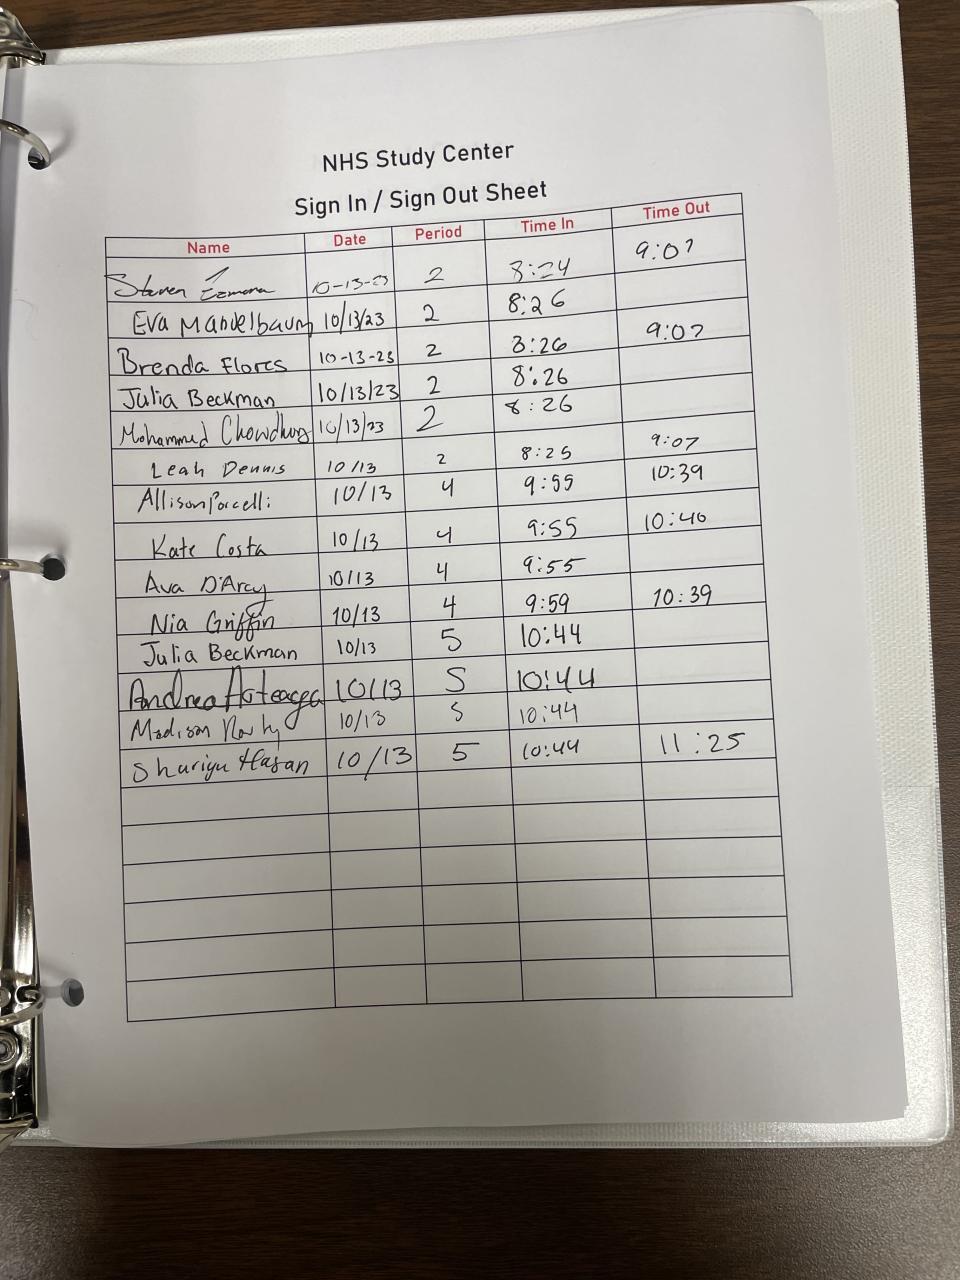 NHS Study Center
Sign In / Sign Out Sheet
Name Date Period Time In Time Out
Steven 10-13-23 2 8:24 9:07
Eva Mandelbaum 10/13/23 2 8:26
Brenda Flores 10-13-23 2 8:26 9:07
Julia Beckman 10/13/23 2 8:26
Mohammed Chowdhury 10/13/23 2 8:26
Leah Dennis 10/13 2 8:25 9:07
Allison Porcelli 10/13 4 9:55 10:39
Kate Costa 10/13 4 9:55 10:40
Ava D'Arcy 10/13 4 9:55
Nia Griffin 10/13 4 9:59 10:39
Julia Beckman 10/13 5 10:44
Andrea Arteaga 10/13 5 10:44
Madison 10/13 5 10:44
Shuriyu Hasan 10/13 5 10:44 11:25